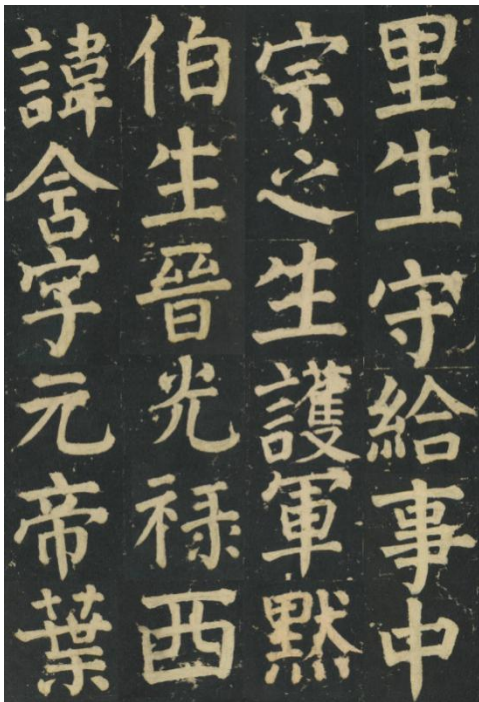 里生守給事中
宗之生護軍默
伯生晉光禄西
諱含字元帝葉